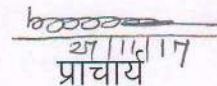 27/11/17
प्राचार्य